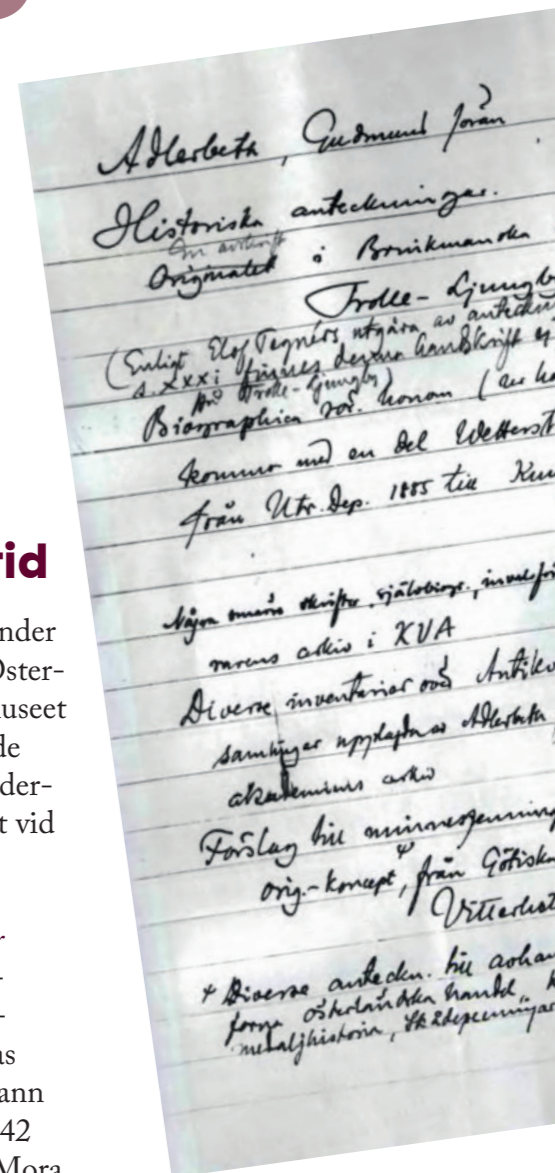 rid
nder
Öster-
useet
de
der-
t vid
r
-
-
as
ann
42
Mora
Adlerbeth, Gudmund Jöran
Historiska anteckningar.
En avskrift
Originalet i Brinkmanska
Trolle-Ljungby
(Enligt Elof Tegnérs utgåva av anteckn
s. XXXI finnes denna handskrift ej
på Trolle-Ljungby)
Biographica rör. honom (se
kommo med en del Wetterst
från Utr. Dep. 1885 till
Några smärre skrifter, självbiogr., 
arkiv i KVA
Diverse inventarier över Antikv
samlingar upprättade av Adlerbeth
akademiens arkiv
Förslag till minnespenning
orig.-koncept, från Götiska
Vitterhet
+ Diverse anteckn. till avhan
forna österländska handel
medaljhistoria, skådepenningar